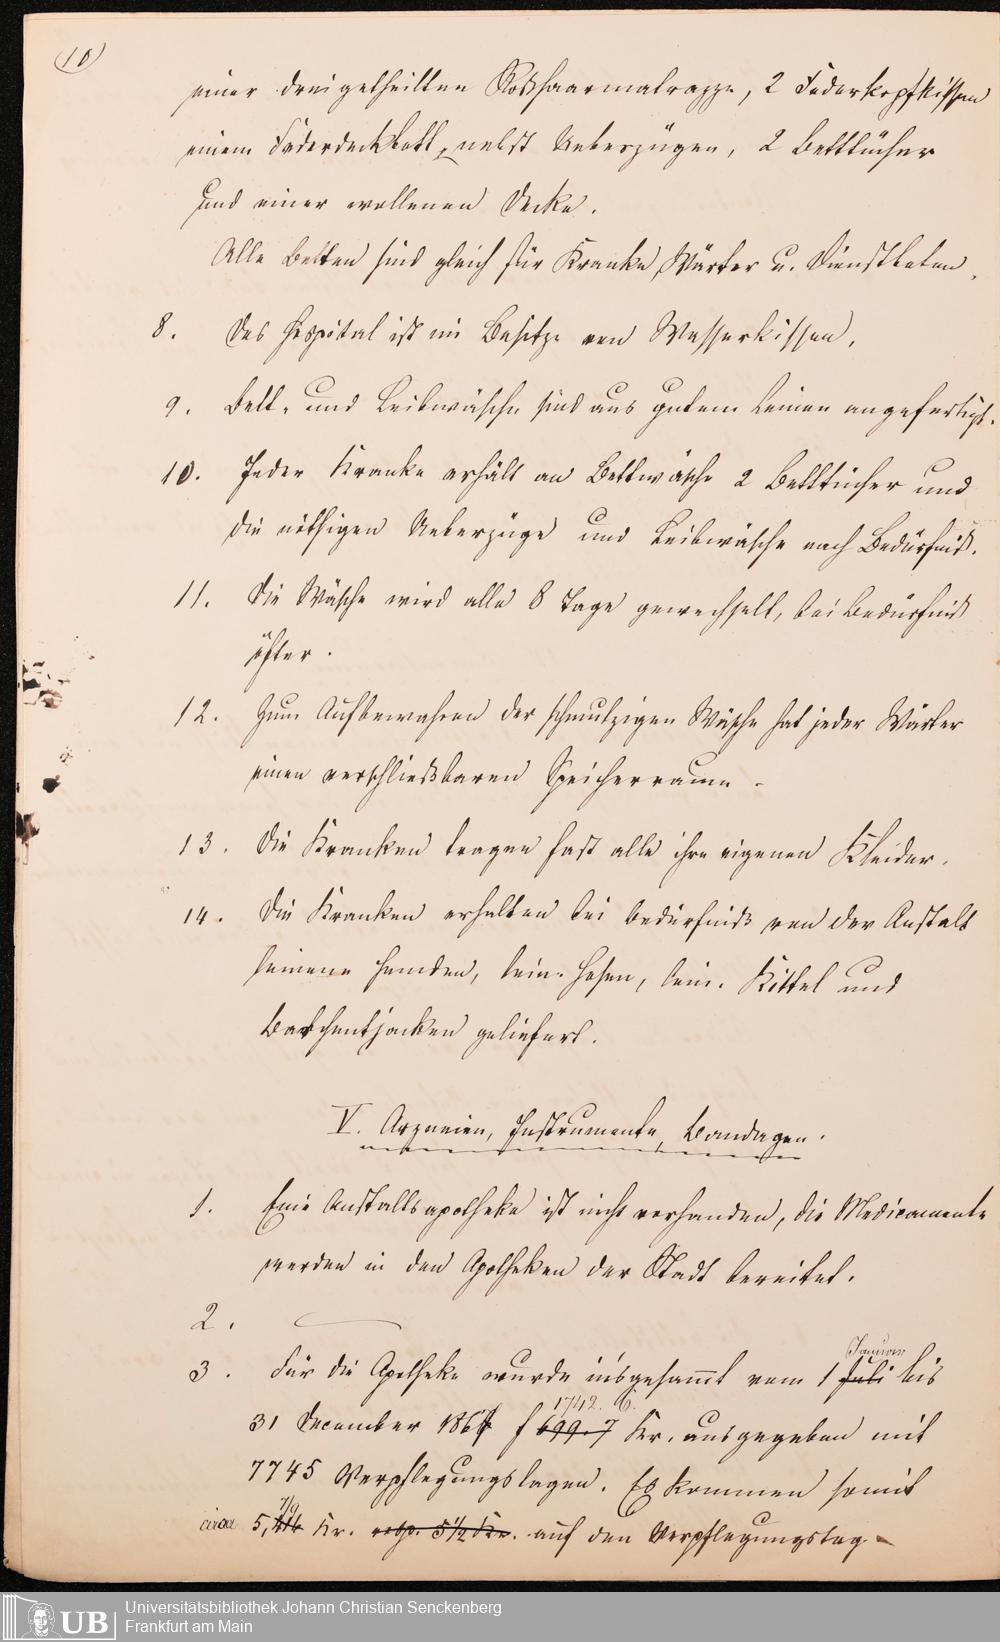 10
einer dreigetheilten Roßhaarmatrazze, 2 Federkopfkissen
einem Federdeckbett, nebst Ueberzügen, 2 Betttücher
und einer wollenen Decke.
Alle Betten sind gleich für Kranke, Wärter u. Dienstboten.
8. Das Hospital ist im Besitze von Wasserkissen.
9. Bett- und Leibwäsche sind aus gutem Leinen angefertigt.
10. Jeder Kranke erhält an Bettwäsche 2 Betttücher und
die nöthigen Ueberzüge und Leibwäsche nach Bedürfniß.
11. Die Wäsche wird alle 8 Tage gewechselt, bei Bedürfniß
öfter.
12. Zum Aufbewahren der schmutzigen Wäsche hat jeder Wärter
einen verschließbaren Speicherraum.
13. Die Kranken tragen fast alle ihre eigenen Kleider.
14. Die Kranken erhalten bei Bedürfniß von der Anstalt
leinene Hemden, lein. Hosen, lein. Kittel und
Barchentjacken geliefert.
V. Arzneien, Instrumente, Bandagen.
1. Eine Anstaltsapotheke ist nicht vorhanden, die Medicamente
werden in den Apotheken der Stadt bereitet.
2.
Januar
3. Für die Apotheke wurde insgesammt vom 1 Juli bis
1742. 6.
31 December 1867 f 699.7 Kr. ausgegeben mit
7745 Verpflegungstagen. Es kommen somit
7/9
circa 5, Kr. resp. 5½ Kr. auf den Verpflegungstag
UB Universitätsbibliothek Johann Christian Senckenberg
Frankfurt am Main